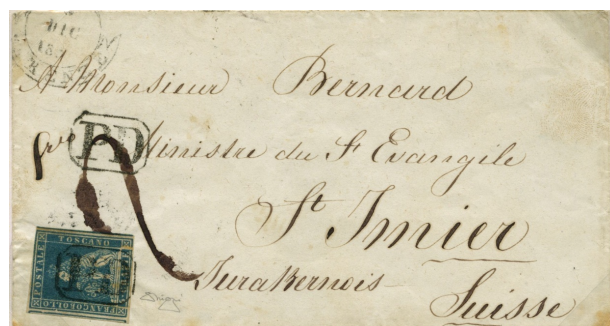 DIC
A Monsieur Bernard
PD
Ministre du St Evangile
St Imier
Jura Bernois
Suisse
FRANCOBOLLO
POSTALE
TOSCANO